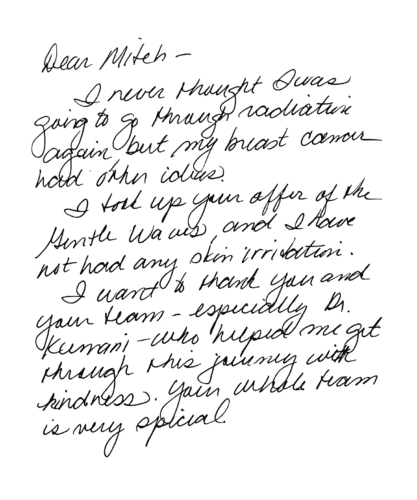 Dear Mitch –
I never thought I was
going to go through radiation
again but my breast cancer
had other ideas.
I took up your offer of the
Gentle Waves, and I have
not had any skin irritation.
I want to thank you and
your team – especially Dr.
Kumani – who helped me get
through this journey with
kindness. Your whole team
is very special.